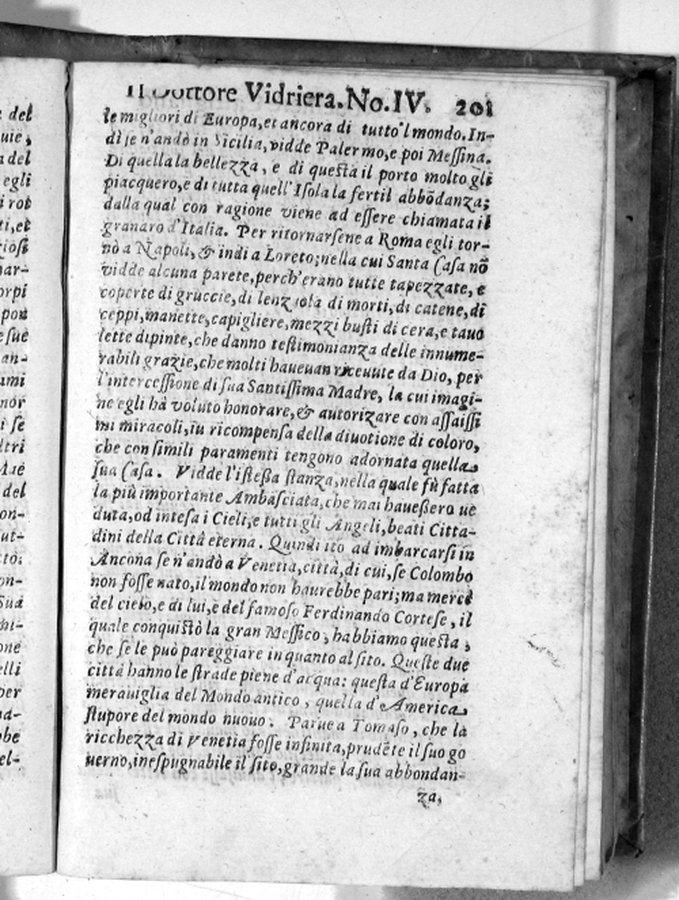 Il Dottore Vidriera. No. IV. 201
le migliori di Europa, et ancora di tutto'l mondo. In-
dì se n'andò in Sicilia, vidde Palermo, e poi Messina.
Di quella la bellezza, e di questa il porto molto gli
piacquero, e di tutta quell'Isola la fertil abbōdanza;
dalla qual con ragione viene ad essere chiamata il
granaro d'Italia. Per ritornarsene a Roma egli tor-
nò a Napoli, & indi a Loreto; nella cui Santa Casa nō
vidde alcuna parete, perch'erano tutte tapezzate, e
coperte di gruccie, di lenzuola di morti, di catene, di
ceppi, manette, capigliere, mezzi busti di cera, e tauo
lette dipinte, che danno testimonianza delle innume-
rabili grazie, che molti haueuan riceuute da Dio, per
l'intercessione di sua Santissima Madre, la cui imagi-
ne egli hà voluto honorare, & autorizare con assaissi
mi miracoli, iu ricompensa della diuotione di coloro,
che con simili paramenti tengono adornata quella
sua Casa. Vidde l'istessa stanza, nella quale fù fatta
la più importante Ambasciata, che mai hauessero ue
duta, od intesa i Cieli, e tutti gli Angeli, beati Citta-
dini della Città eterna. Quindi ito ad imbarcarsi in
Ancona se n'andò a Venetia, città, di cui, se Colombo
non fosse nato, il mondo non haurebbe pari; ma mercè
del cielo, e di lui, e del famoso Ferdinando Cortese, il
quale conquistò la gran Messico, habbiamo questa,
che se le può pareggiare in quanto al sito. Queste due
città hanno le strade piene d'acqua: questa d'Europa
merauiglia del Mondo antico, quella d'America
stupore del mondo nuouo. Parue a Tomaso, che la
ricchezza di Venetia fosse infinita, prudēte il suo go
uerno, inespugnabile il sito, grande la sua abbondan-
za,
del
uie,
del
egli
i rot
ti, et
iosi
ar-
orpi
pou
e sue
an-
umi
nor
i se
ltri
del
on-
ut-
on-
Sua
hi-
one
elli
per
na-
bbe
el-